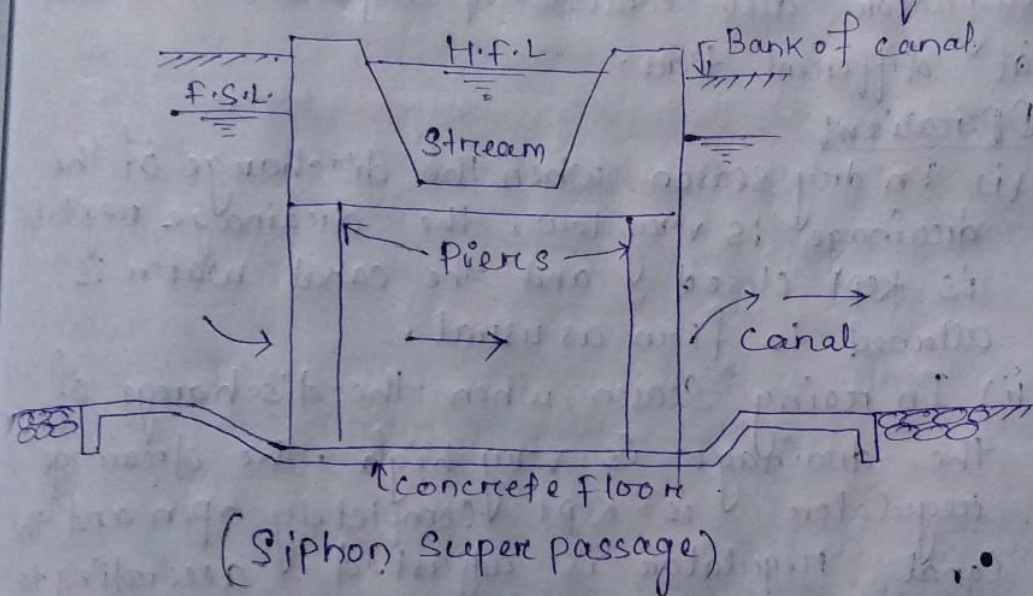 H.f.L
Bank of canal.
F.S.L.
Stream
Piers
Canal
Concrete floor.
(Siphon Super passage)